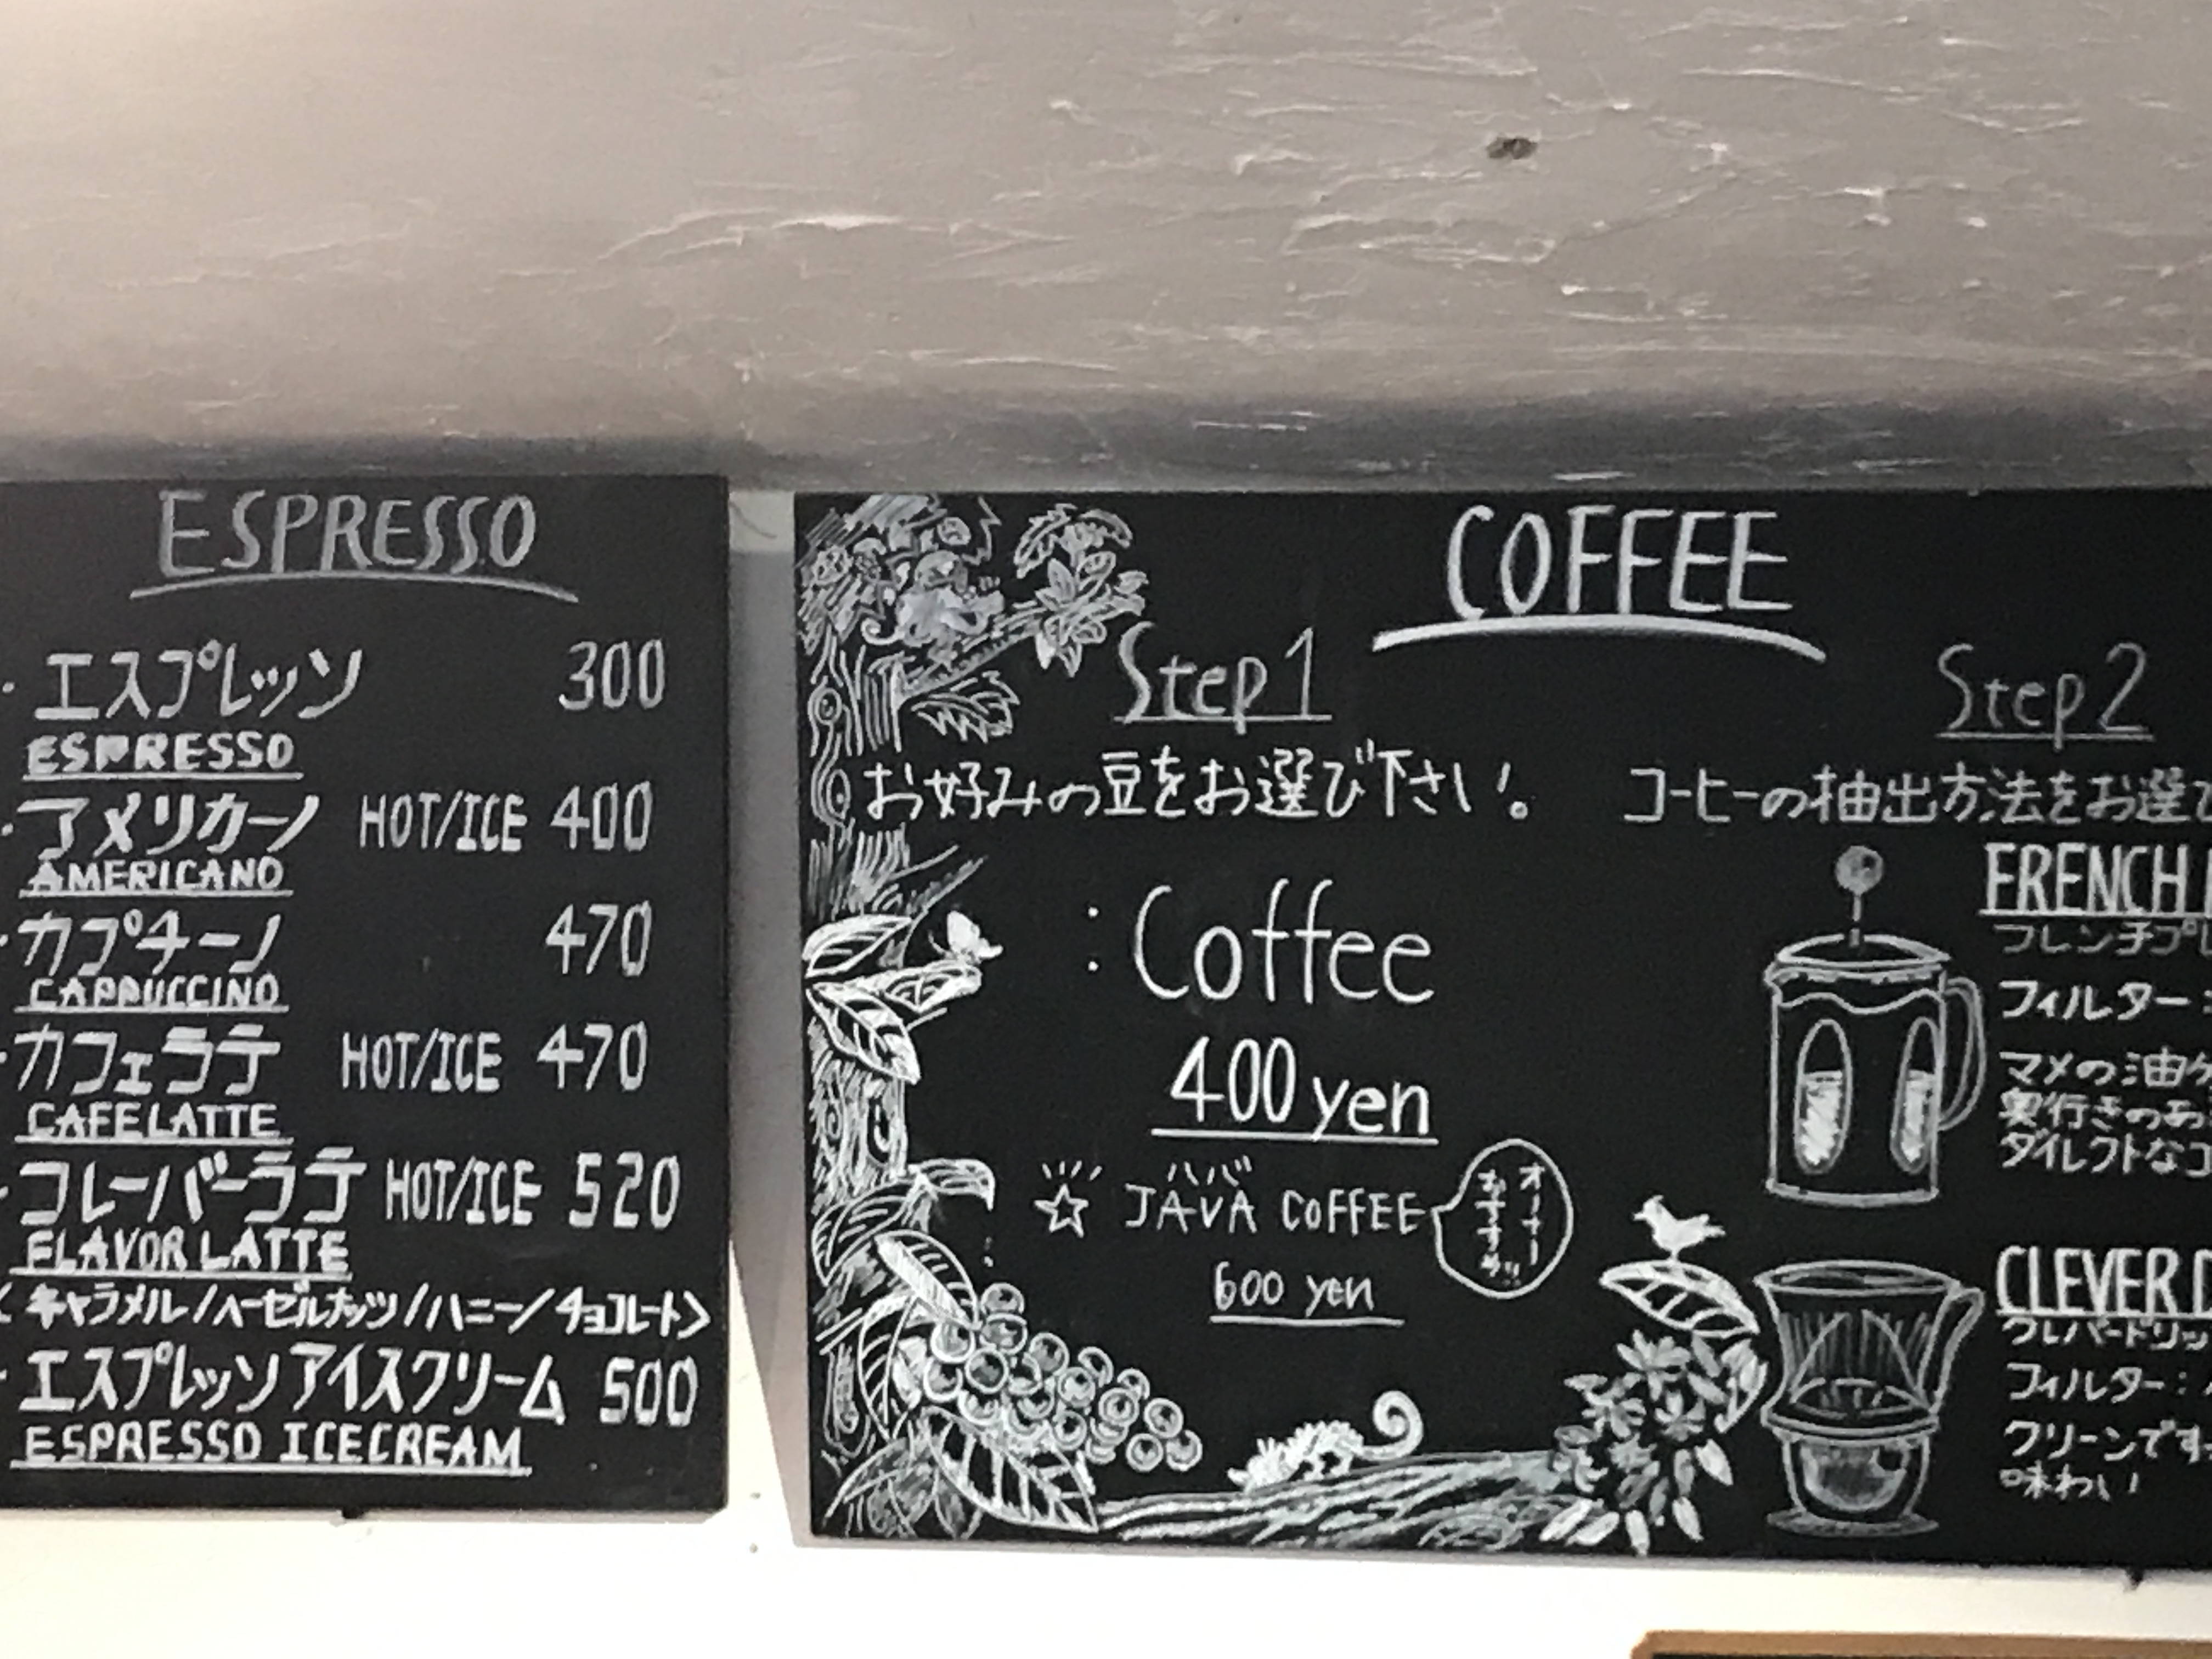 ESPRESSO
・エスプレッソ 300
ESPRESSO
・アメリカーノ HOT/ICE 400
AMERICANO
・カプチーノ 470
CAPPUCCINO
・カフェラテ HOT/ICE 470
CAFELATTE
・フレーバーラテ HOT/ICE 520
FLAVOR LATTE
<キャラメル/ヘーゼルナッツ/ハニー/チョコレート>
・エスプレッソアイスクリーム 500
ESPRESSO ICECREAM
COFFEE
Step1
お好みの豆をお選び下さい。
:Coffee
400yen
ハハ゛
☆ JAVA COFFEE
オーナー
おすすめ!!
600 yen
Step2
コーヒーの抽出方法をお選び
FRENCH
フレンチプレ
フィルター:
マメの油
奥行きのあ
ダイレクトなコ
CLEVER D
クレバードリッ
フィルター:
クリーンです
味わい